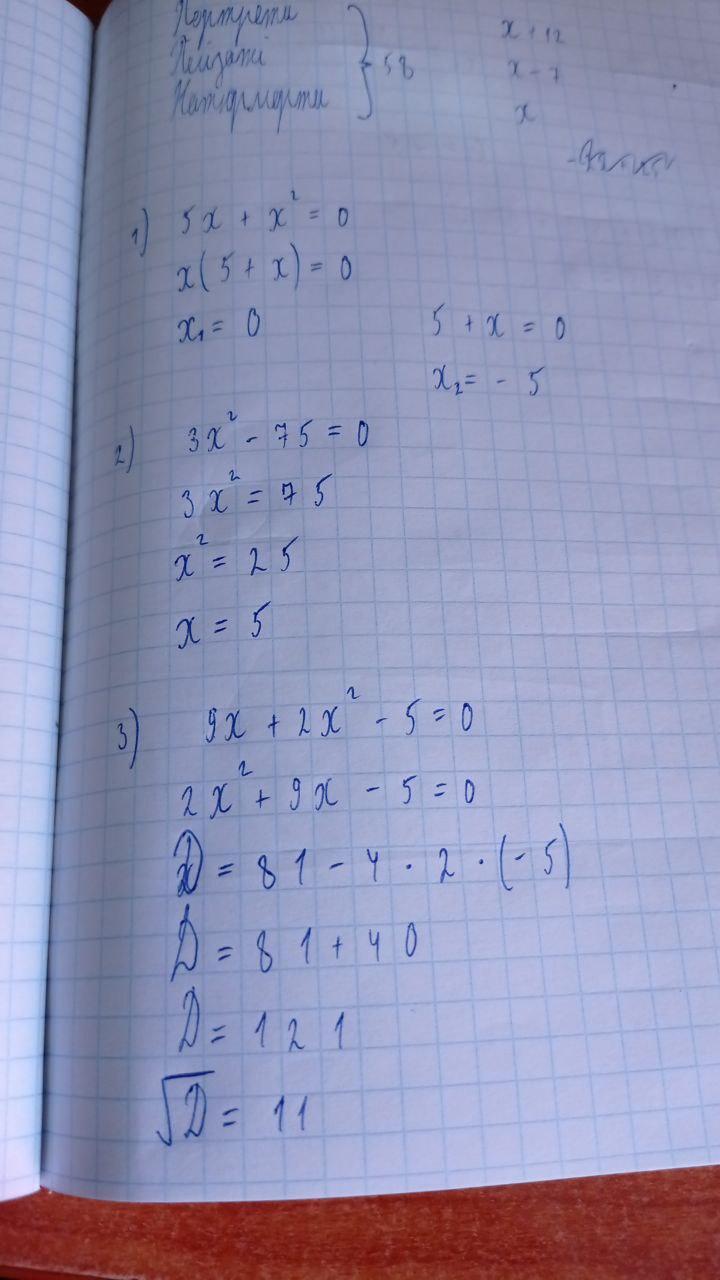 Портрети x + 12
Пейзажі } 58 x - 7
Натюрморти x
1) 5x + x² = 0
x(5 + x) = 0
x₁ = 0 5 + x = 0
x₂ = - 5
2) 3x² - 75 = 0
3x² = 75
x² = 25
x = 5
3) 9x + 2x² - 5 = 0
2x² + 9x - 5 = 0
D = 81 - 4 · 2 · (-5)
D = 81 + 40
D = 121
√D = 11